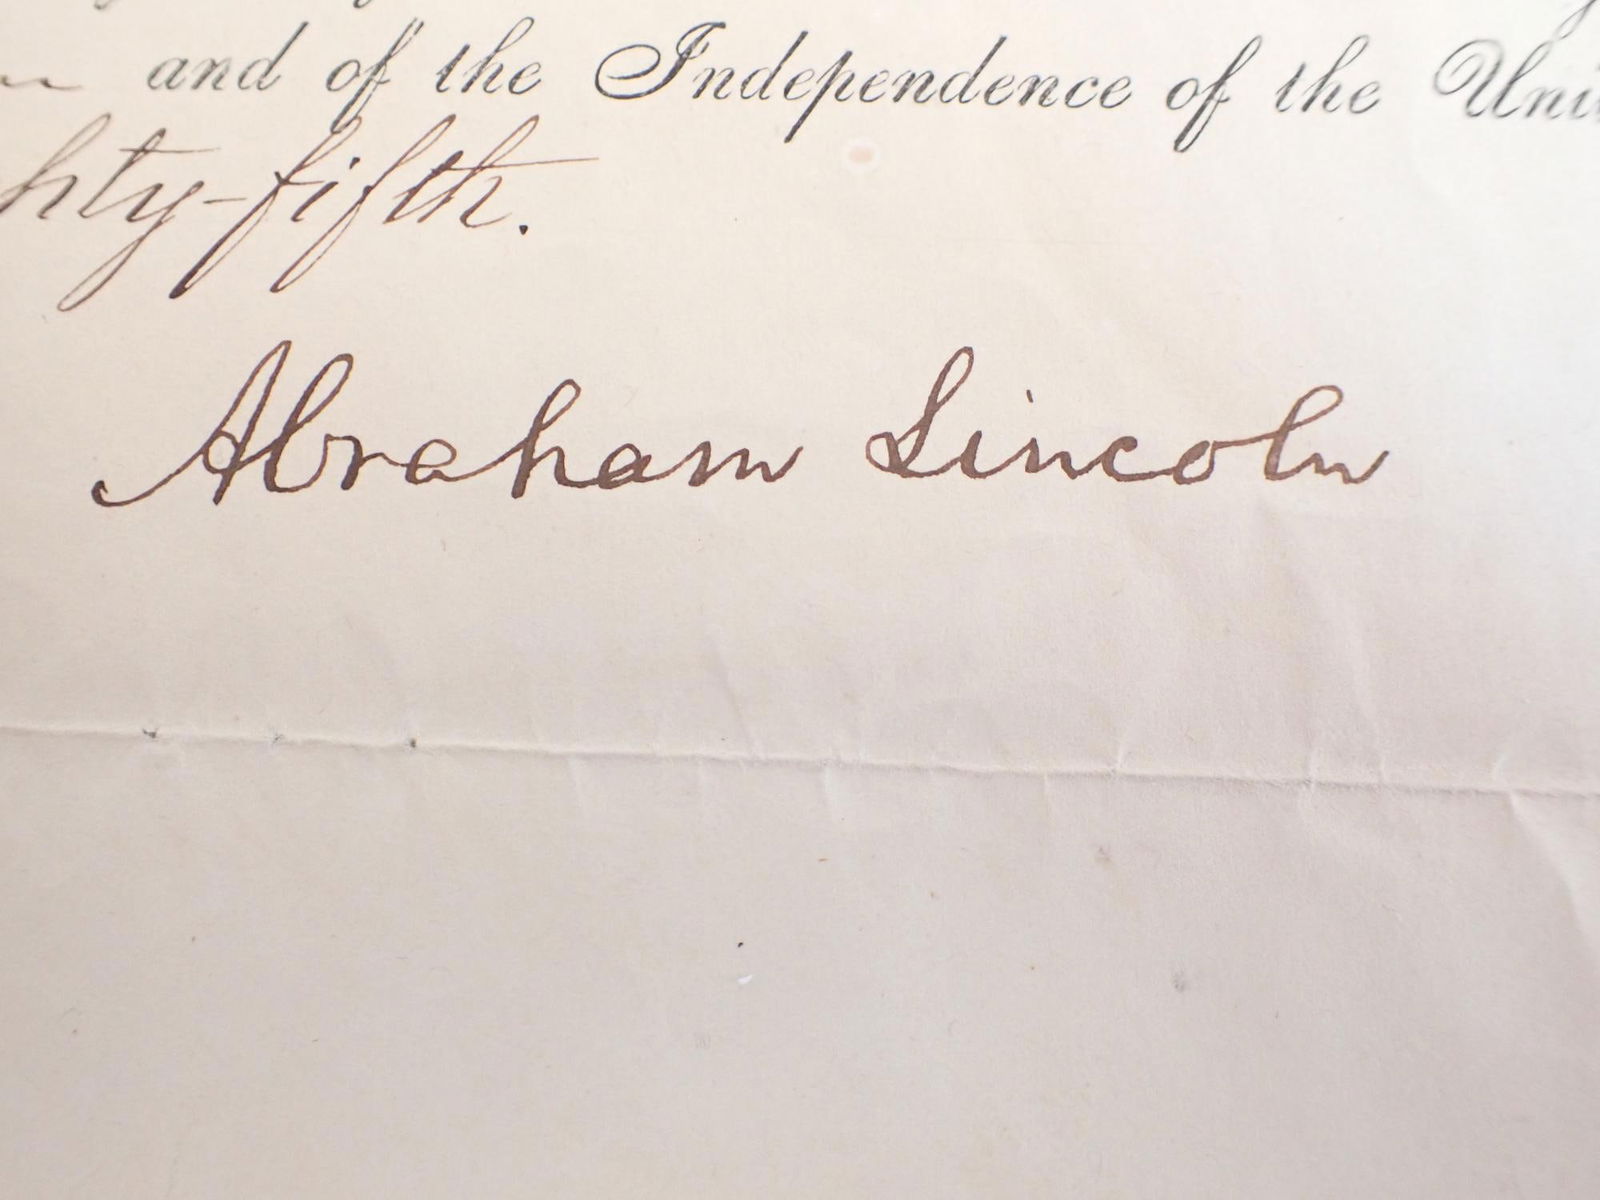 and of the Independence of the Uni
hty-fifth.
Abraham Lincoln